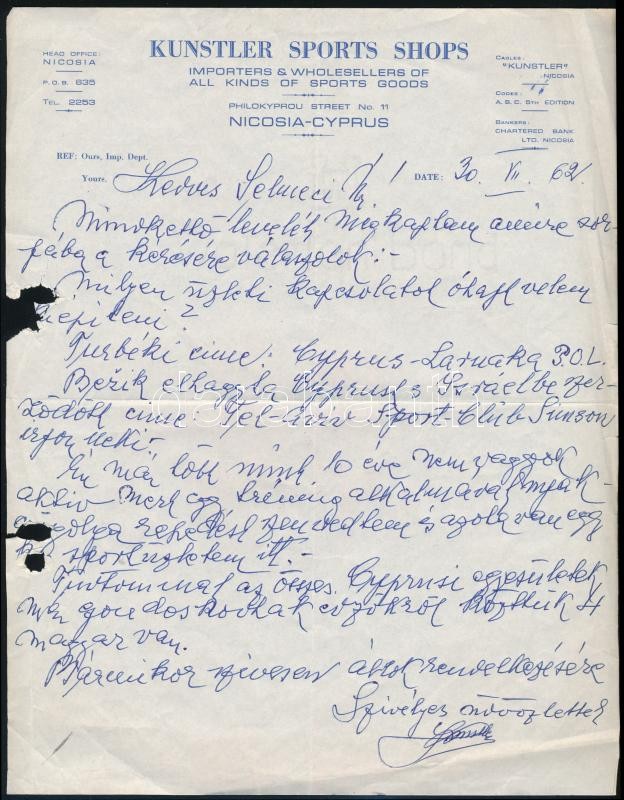 HEAD OFFICE:
NICOSIA
P.O.B. 635
TEL. 2253
KUNSTLER SPORTS SHOPS
IMPORTERS & WHOLESELLERS OF
ALL KINDS OF SPORTS GOODS
PHILOKYPROU STREET No. 11
NICOSIA-CYPRUS
CABLES:
"KUNSTLER"
NICOSIA
CODES:
A.B.C. 5TH EDITION
BANKERS:
CHARTERED BANK
LTD. NICOSIA
REF: Ours, Imp. Dept.
Yours. Kedves Selmeci Úr! DATE: 30. VII. 62.
Mindkettő levelét megkaptam amire sor-
jában a kérésére válaszolok:-
Milyen üzleti kapcsolatot óhajt velem
kiépíteni?
Turbéki címe: Cyprus-Larnaka P.O.L.
elhagyta Cyprust s Izraelbe szer-
ződött címe: Tel Aviv Sport Club Simson
írjon neki.-
Én már több mint 10 éve nem vagyok
aktív mert egy tréning alkalmával
repedést szenvedtem és azóta van egy
kis sportüzletem itt.-
Tudtommal az összes Cyprusi egyesületek
már gondoskodtak edzőkről köztük 4
magyar van.
Bármikor szívesen állok rendelkezésére
Szívélyes üdvözlettel